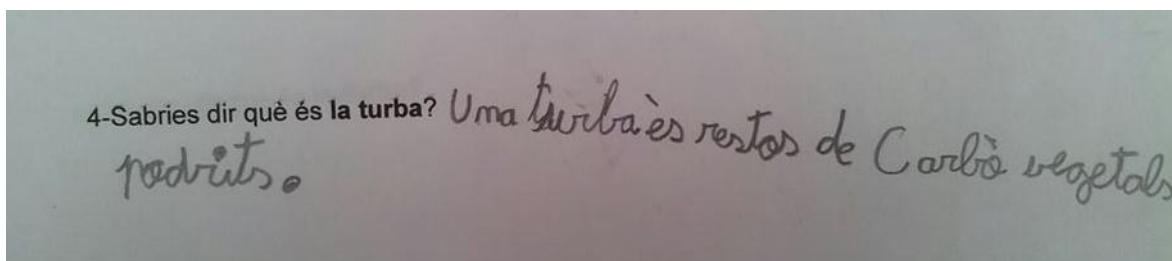 4-Sabries dir què és la turba? Una turba ès restos de Carbò vegetals
podrits.